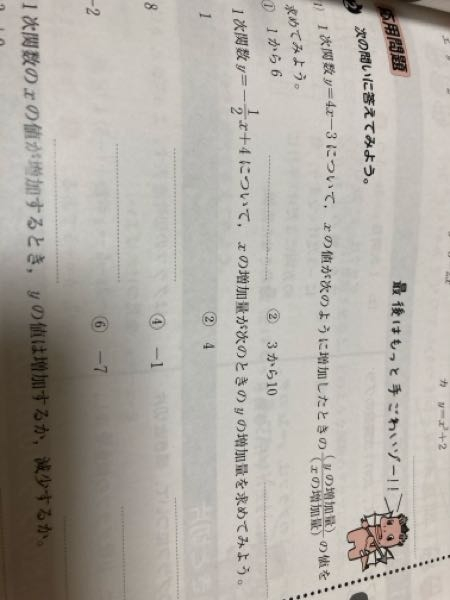 カ y=x²+2
最後はもっと手ごわいゾー!!
応用問題
次の問いに答えてみよう。
1次関数y=4x−3について，xの値が次のように増加したときの(yの増加量)/(xの増加量)の値を
求めてみよう。
① 1から6 ② 3から10
1次関数y=−1/2x+4について，xの増加量が次のときのyの増加量を求めてみよう。
1 ② 4
8 ④ −1
−2 ⑥ −7
1次関数のxの値が増加するとき，yの値は増加するか，減少するか。